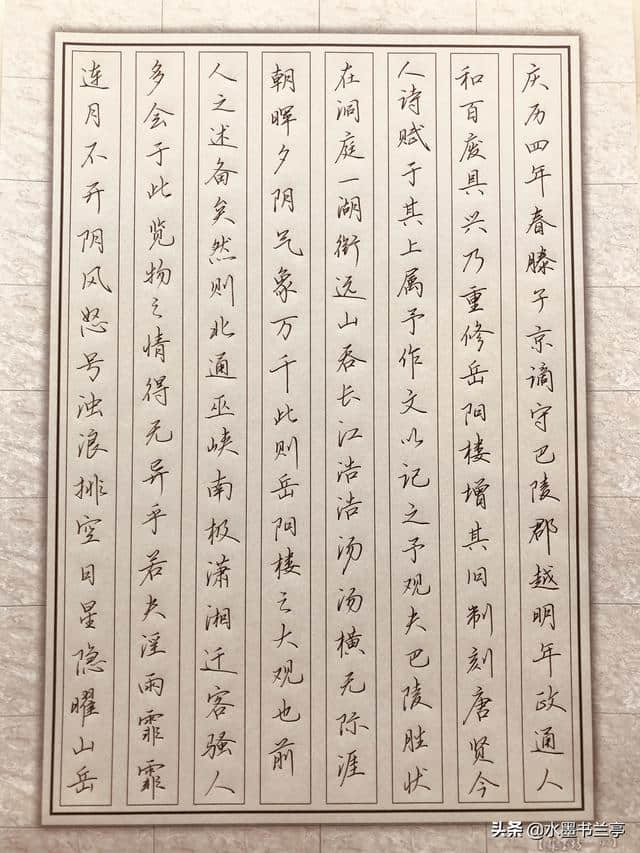 庆历四年春滕子京谪守巴陵郡越明年政通人
和百废具兴乃重修岳阳楼增其旧制刻唐贤今
人诗赋于其上属予作文以记之予观夫巴陵胜状
在洞庭一湖衔远山吞长江浩浩汤汤横无际涯
朝晖夕阴气象万千此则岳阳楼之大观也前
人之述备矣然则北通巫峡南极潇湘迁客骚人
多会于此览物之情得无异乎若夫淫雨霏霏
连月不开阴风怒号浊浪排空日星隐曜山岳
头条 @水墨书兰亭